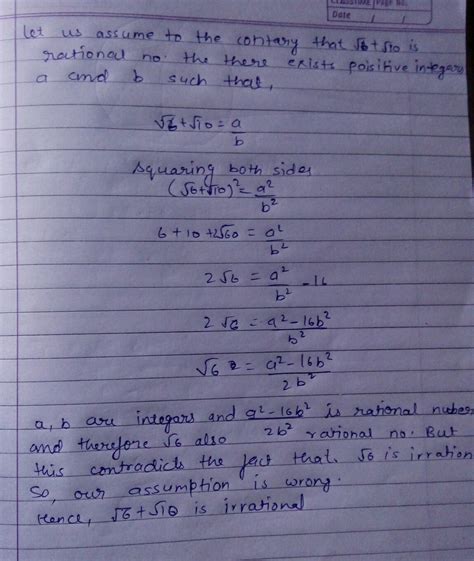 CLASSTIME Page No.
Date / /
let us assume to the contary that √6+√10 is
rational no. the there exists poisitive integars
a and b such that,
√6+√10 = a/b
Squaring both sides
(√6+√10)² = a²/b²
6+10+2√60 = a²/b²
2√6 = a²/b² - 16
2√6 = a²-16b²/b²
√6 = a²-16b²/2b²
a, b are integars and a²-16b²/2b² is rational nuber
and therefore √6 also rational no. But
this contradicts the fact that √6 is irration
So, our assumption is wrong.
Hence, √6+√10 is irrational